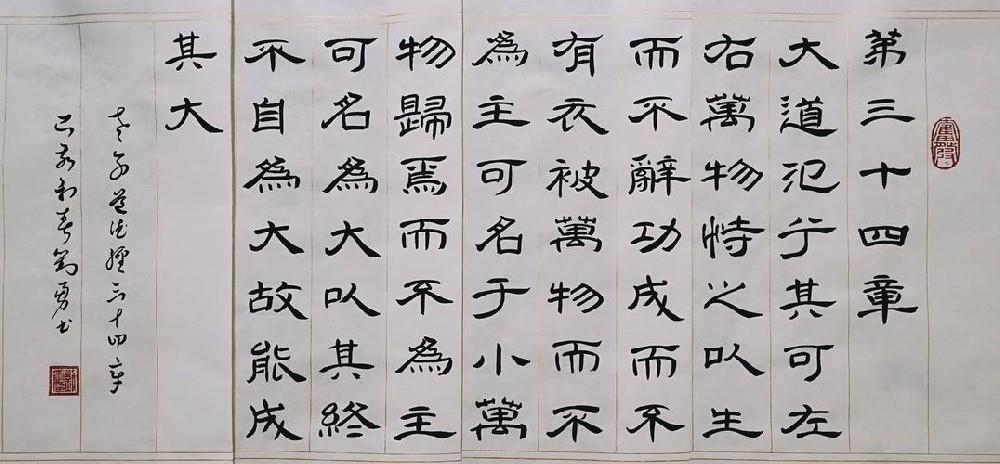 第三十四章
大道氾兮其可左
右萬物恃之以生
而不辭功成而不
有衣被萬物而不
為主可名于小萬
物歸焉而不為主
可名為大以其終
不自為大故能成
其大
老子道德經三十四章
己亥初春劉勇书